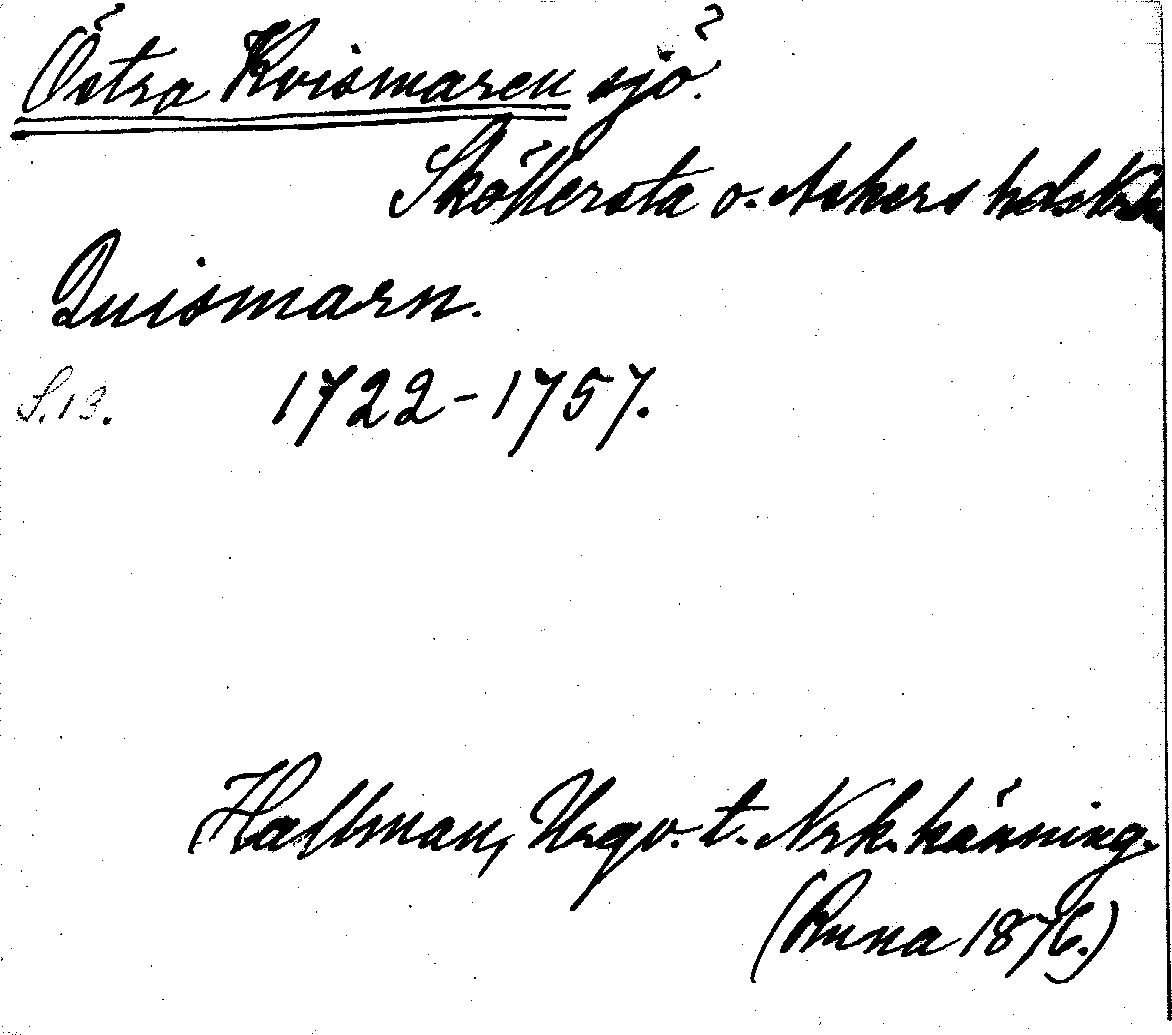 Östra Kvismaren sjö?
Sköllersta o. Askers hds
Quismarn.
S. 13. 1722-1757.
Hallman, Utgv. t. Nrk. känning.
(Runa 1876.)